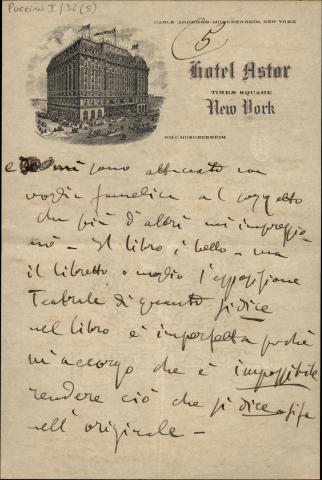 Puccini I/32(5)
CABLE ADDRESS-MUSCHENHEIM, NEW YORK
5
Hotel Astor
TIMES SQUARE
New York
WM C. MUSCHENHEIM
e mi sono attaccato con
voglia famelica al soggetto
che più d'altri mi impressio
nò - Il libro è bello - ma
il libretto o meglio l'apposizione
Teatrale di quanto si dice
nel libro è imperfetta poichè
m'accorgo che è impossibile
rendere ciò che si dice
nell'originale -